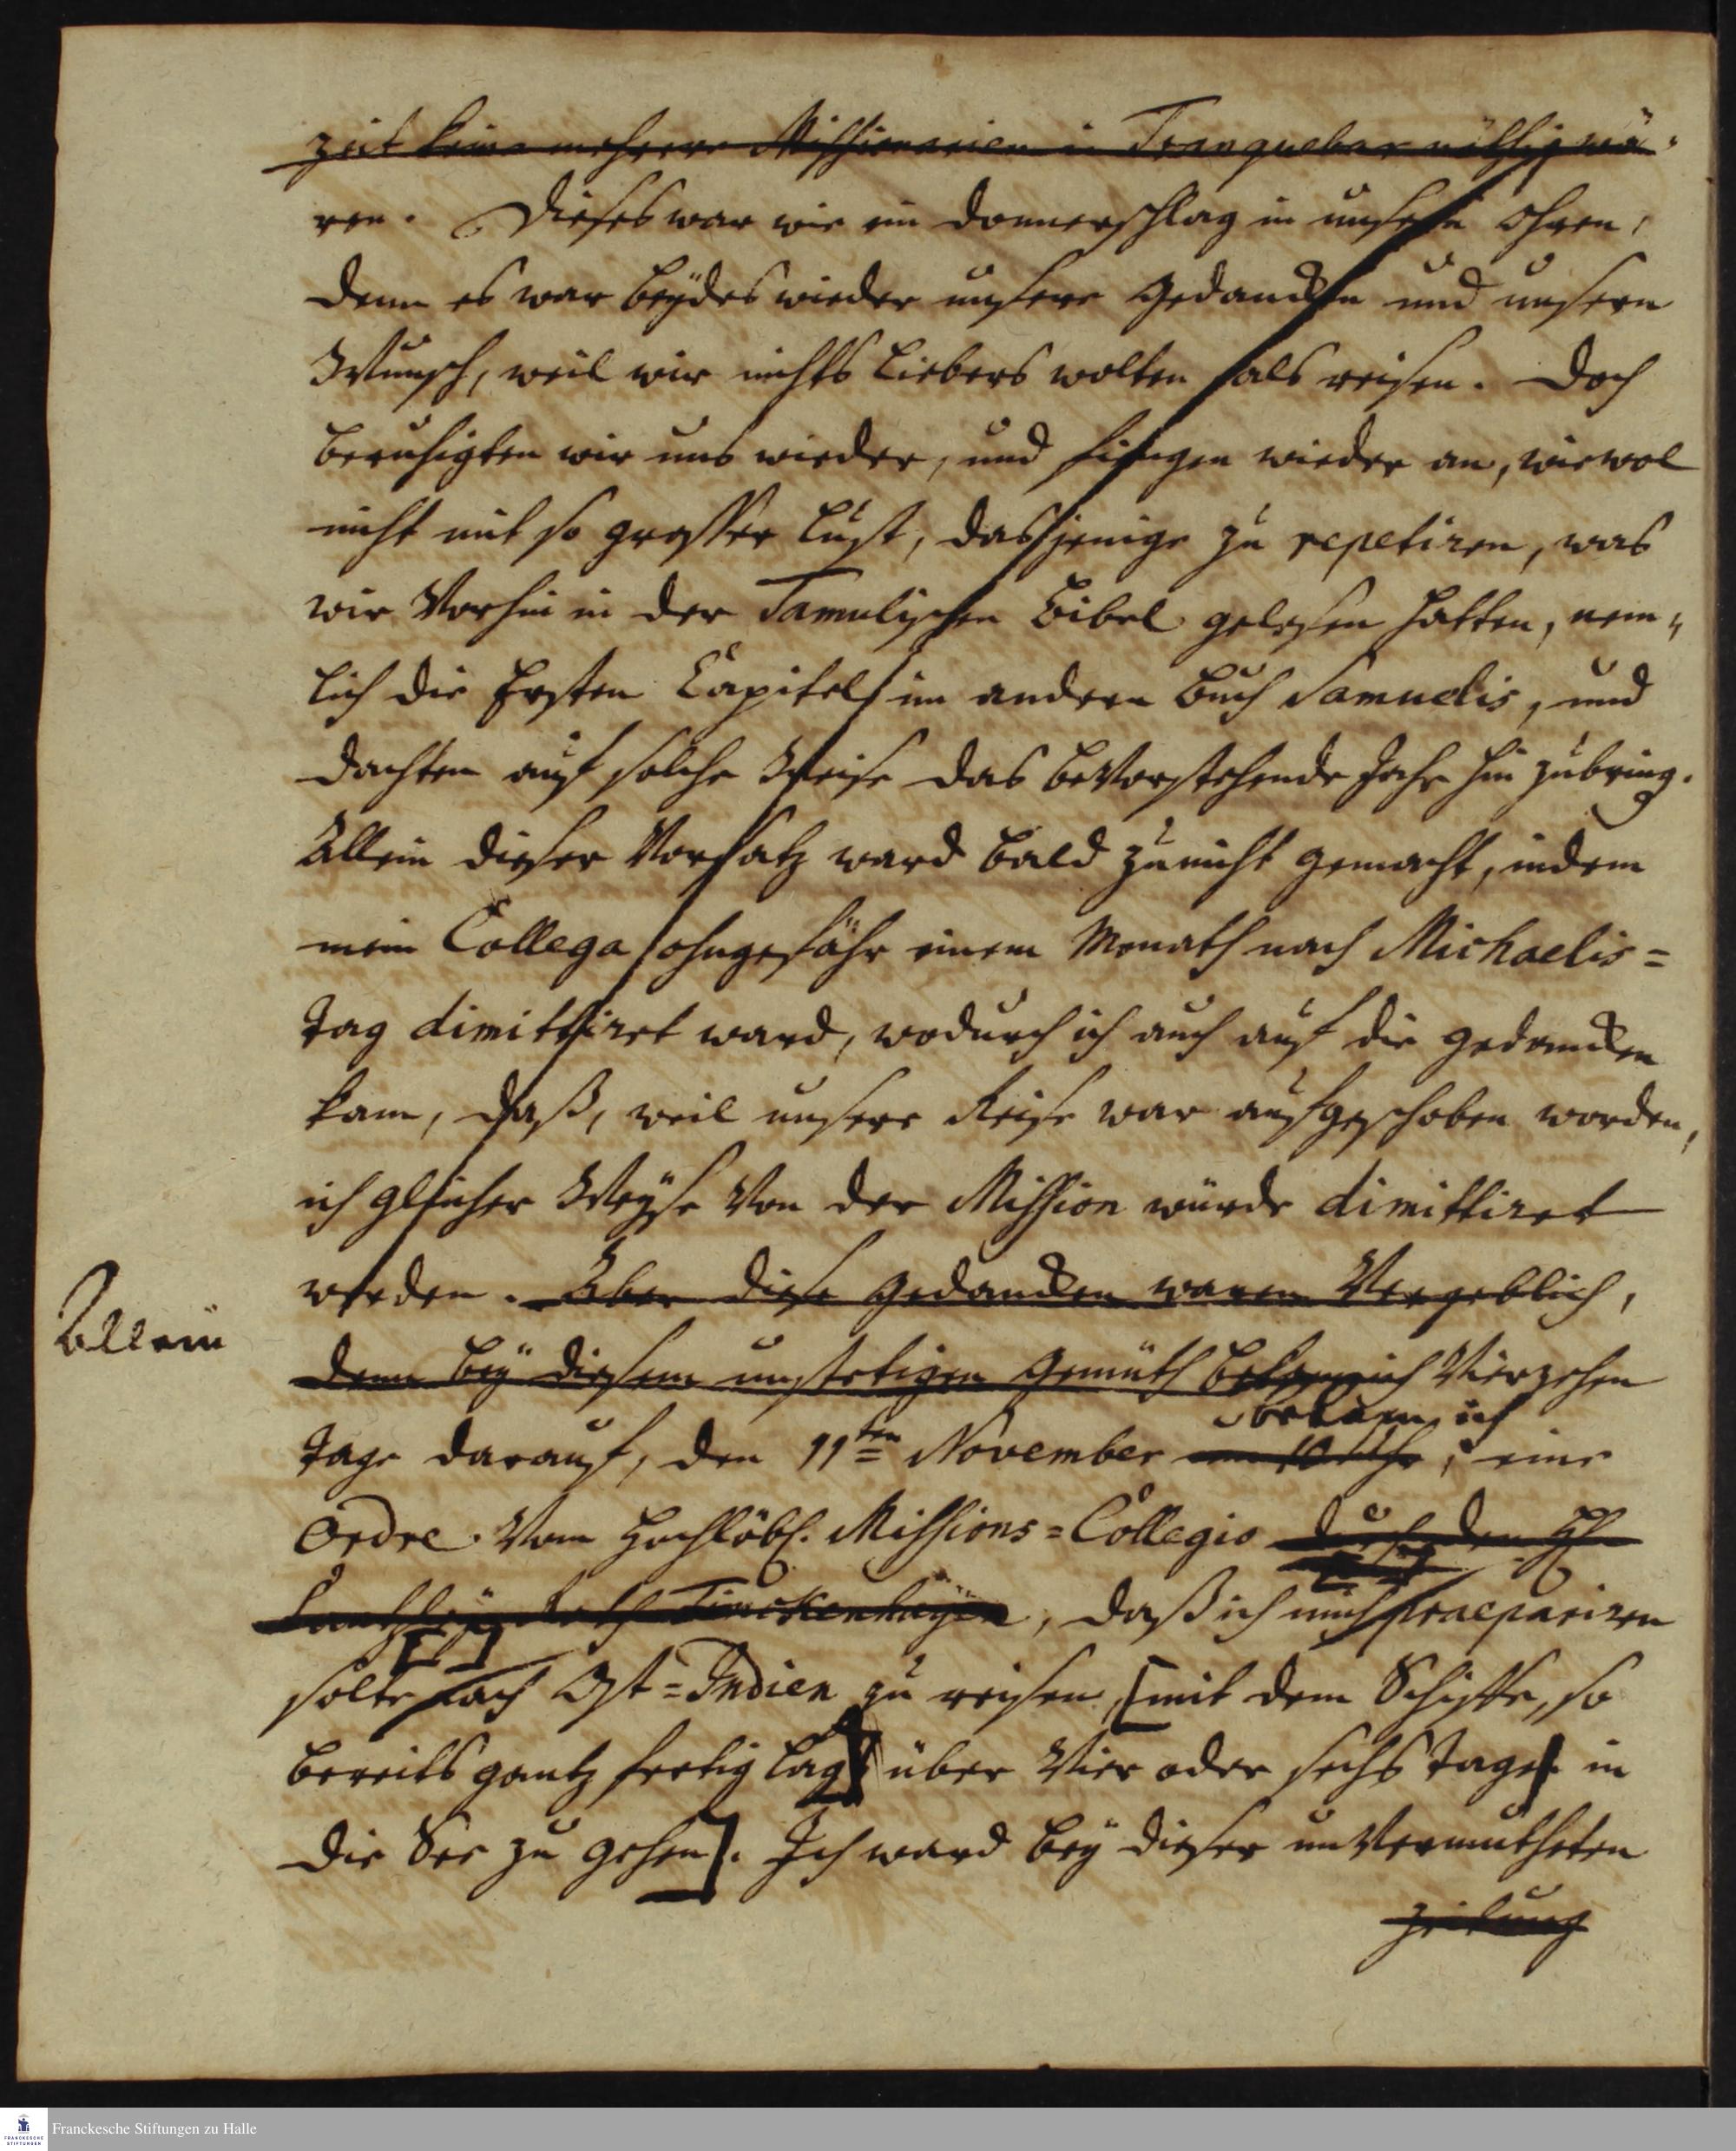 zeit keine mehrere Missionarien in Tranquebar nöthig wä-
ren. Dieses war wie ein Donnerschlag in unsern Ohren,
denn es war beydes wieder unsere Gedancken und unsern
Wunsch, weil wir nichts Liebers wolten als reisen. Doch
beruhigten wir uns wieder, und fingen wieder an, wiewol
nicht mit so grosser Lust, dasjenige zu repetiren, was
wir Vorhin in der Tamulischen Bibel gelesen hatten, nem-
lich die Ersten Capitel im andern Buch Samuelis, und
dachten auf solche Weise das beVorstehende Jahr hin zubring.
Allein dieser Vorsatz ward bald zu nicht gemacht, indem
mein Collega ohngefähr einem Monath nach Michaelis=
Tag dimittiret ward, wodurch ich auch auf die gedancken
kam, daß, weil unsere Reise war aufgeschoben worden,
ich gleicher Weyse Von der Mission würde dimittiret
werden. Aber diese Gedancken waren Vergeblich,
Allein
denn bey diesem unstetigen Gemüth bekam ich Vierzehen
bekam ich
Tage darauf, den 11ten November um 10 Uhr, eine
Ordre Vom Hochlöbl. Missions=Collegio durch den H.
Finckenhagen, daß ich mich praepariren
solte nach Ost=Indien zu reisen, [mit dem Schiffe, so
bereits gantz fertig lag] über Vier oder sechs Tage] in
die See zu gehen]. Ich ward bey dieser unVermutheten
Zeitung
Franckesche Stiftungen zu Halle